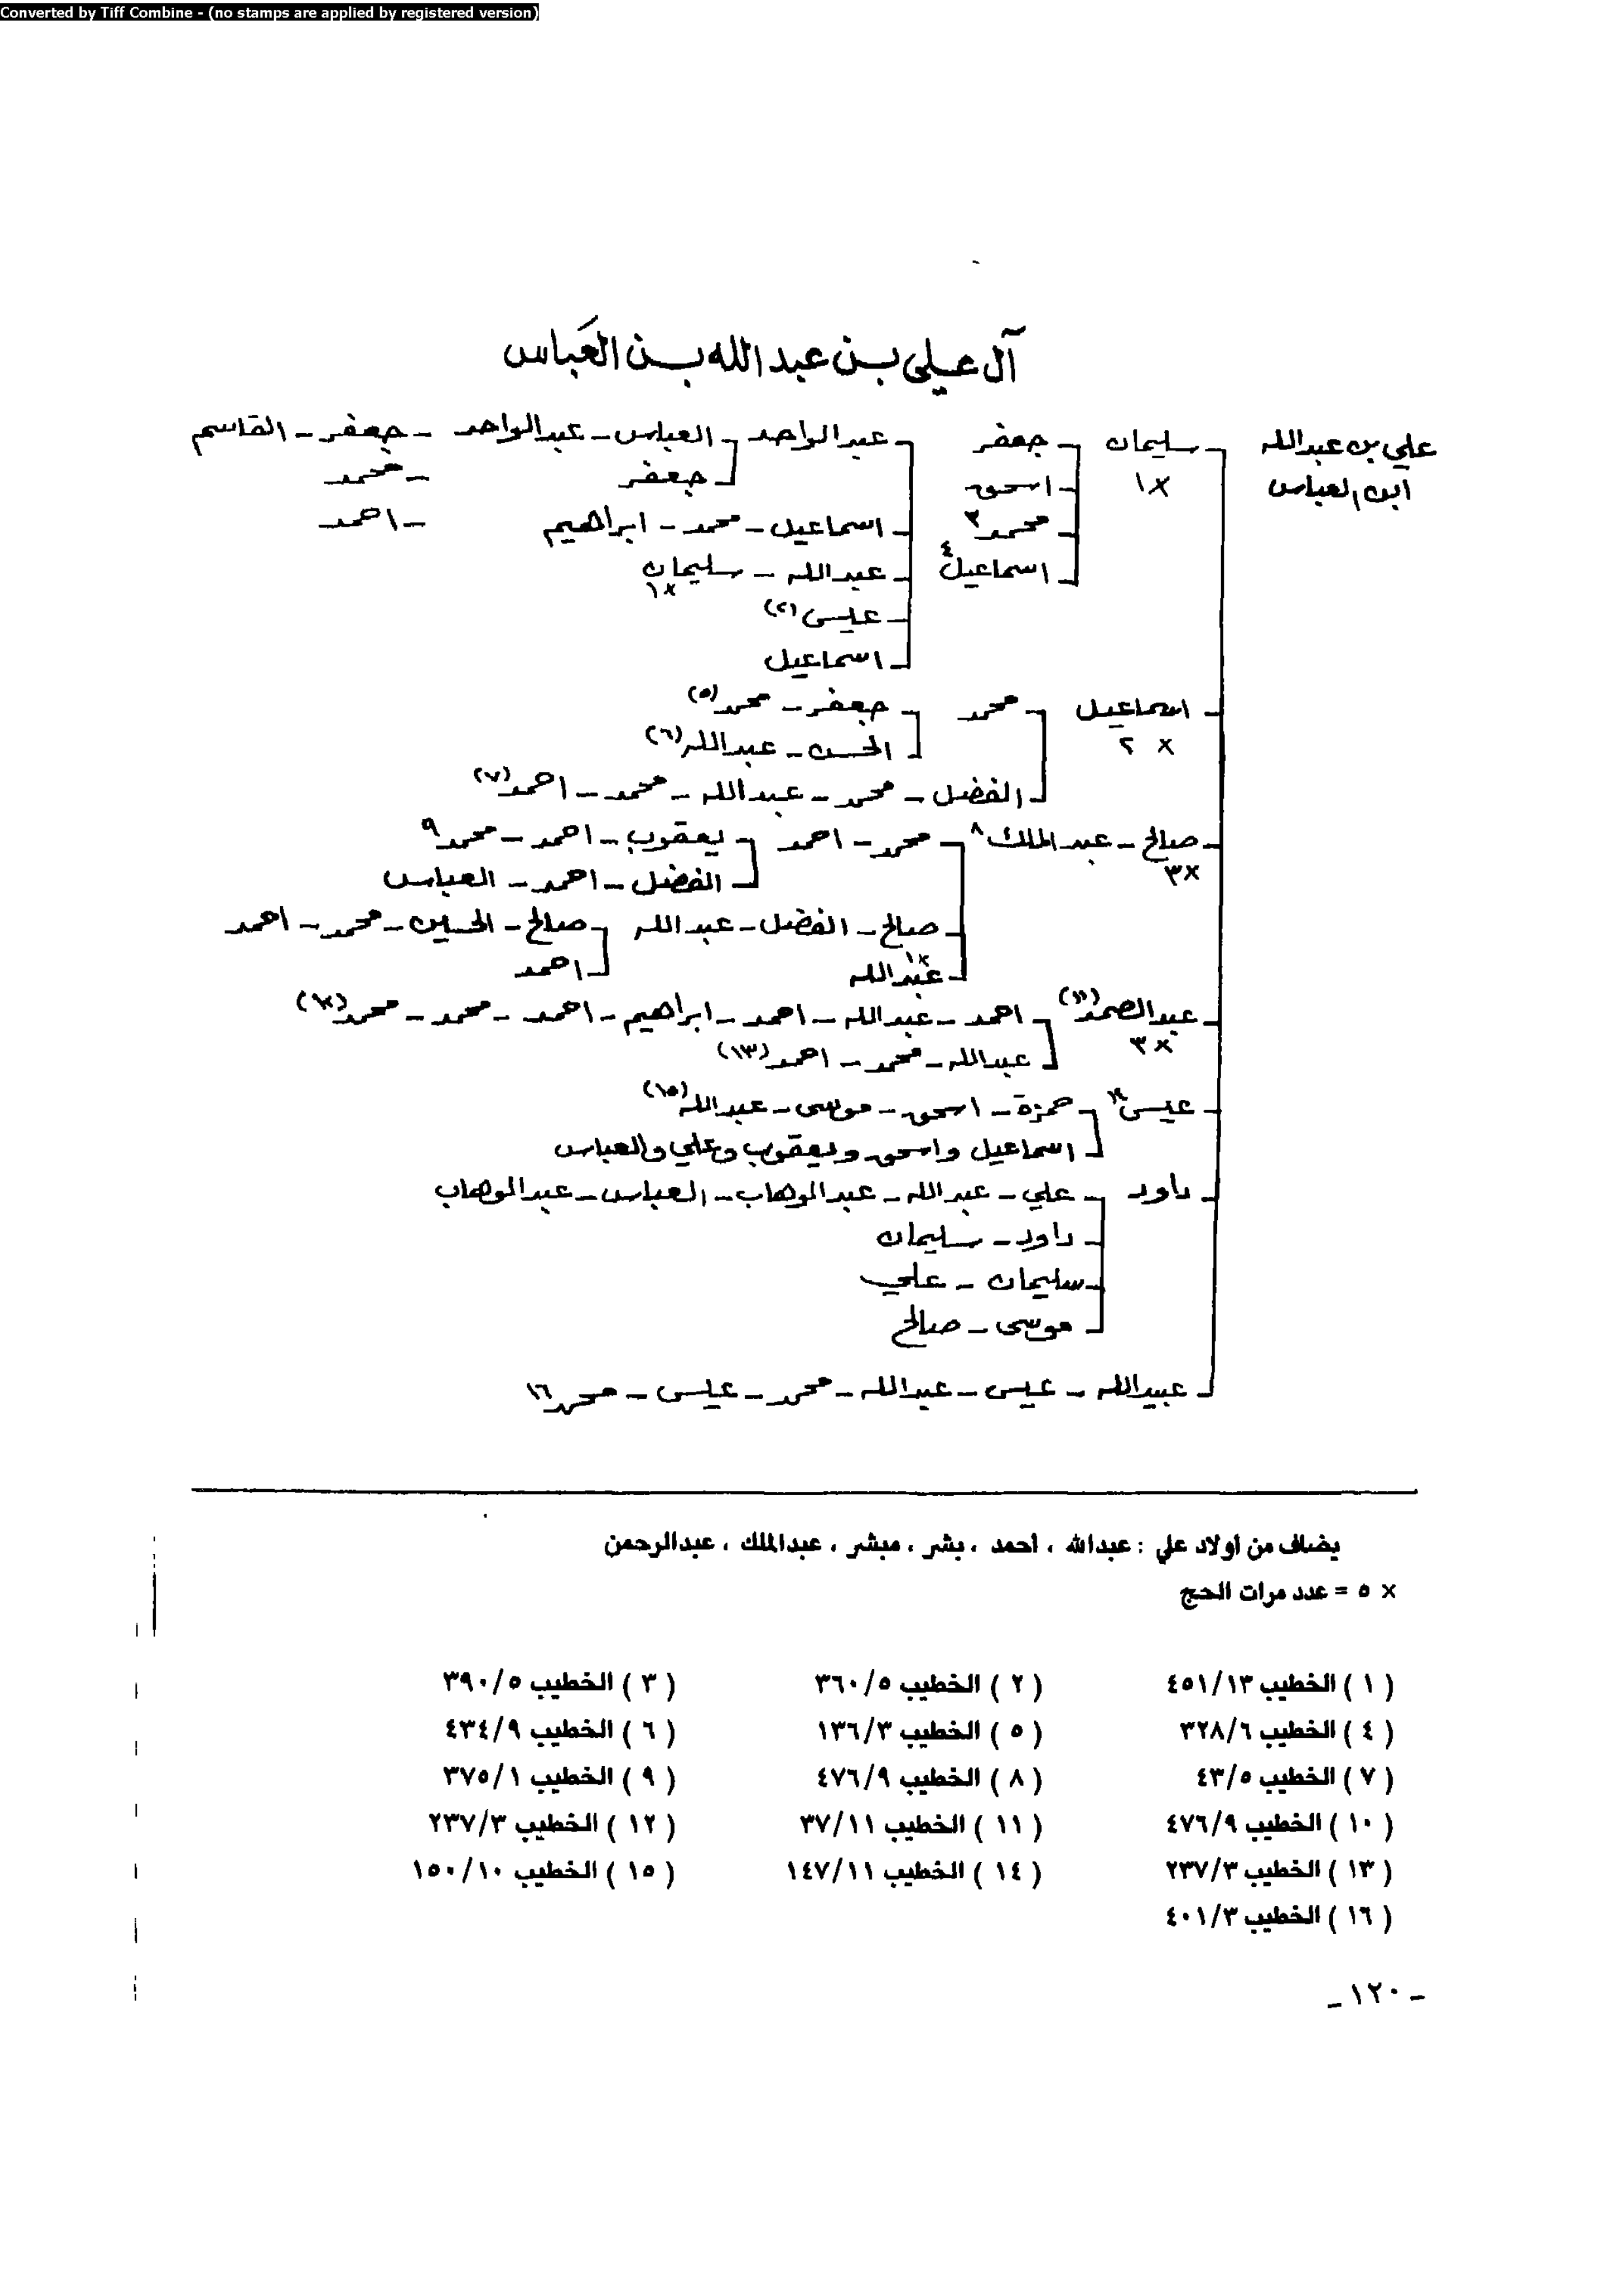 Converted by Tiff Combine - (no stamps are applied by registered version)
آل علي بن عبدالله بن العباس
علي بن عبدالله - سليمان - جعفر - عبدالواحد - العباس - عبدالواحد - جعفر - القاسم
ابن العباس ×١ - اسحق - جعفر - محمد
- محمد ٣ - اسماعيل - محمد - ابراهيم - احمد
- اسماعيل ٤ - عبدالله - سليمان
×١
- عيسى (٢)
- اسماعيل
- اسماعيل - محمد - جعفر - محمد (٥)
× ٢ - الحسن - عبدالله (٦)
- الفضل - محمد - عبدالله - محمد - احمد (٧)
- صالح - عبدالملك ٨ - محمد - احمد - يعقوب - احمد - محمد ٩
×٣ - الفضل - احمد - العباس
- صالح - الفضل - عبدالله - صالح - الحسين - محمد - احمد
- عبدالله - احمد
- عبدالصمد (١١) - احمد - عبدالله - احمد - ابراهيم - احمد - محمد - محمد (١٢)
×٣ - عبدالله - محمد - احمد (١٣)
- عيسى ١٤ - حمزة - اسحق - موسى - عبدالله (١٥)
- اسماعيل واسحق ويعقوب وعلي والعباس
- داود - علي - عبدالله - عبدالوهاب - العباس - عبدالوهاب
- داود - سليمان
- سليمان - علي
- موسى - صالح
- عبيدالله - عيسى - عبدالله - محمد - عيسى - محمد ١٦
يضاف من اولاد علي : عبدالله ، احمد ، بشر ، مبشر ، عبدالملك ، عبدالرحمن
× ٥ = عدد مرات الحج
( ١ ) الخطيب ٤٥١/١٣ ( ٢ ) الخطيب ٣٦٠/٥ ( ٣ ) الخطيب ٣٩٠/٥
( ٤ ) الخطيب ٣٢٨/٦ ( ٥ ) الخطيب ١٣٦/٣ ( ٦ ) الخطيب ٤٣٤/٩
( ٧ ) الخطيب ٤٣/٥ ( ٨ ) الخطيب ٤٧٦/٩ ( ٩ ) الخطيب ٣٧٥/١
( ١٠ ) الخطيب ٤٧٦/٩ ( ١١ ) الخطيب ٣٧/١١ ( ١٢ ) الخطيب ٢٣٧/٣
( ١٣ ) الخطيب ٢٣٧/٣ ( ١٤ ) الخطيب ١٤٧/١١ ( ١٥ ) الخطيب ١٥٠/١٠
( ١٦ ) الخطيب ٤٠١/٣
- ١٢٠ -